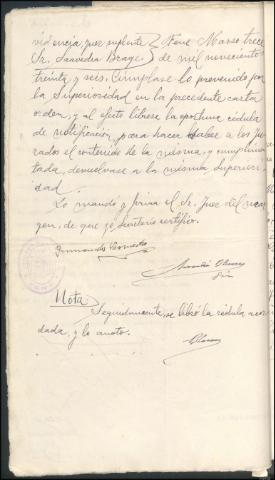 videncia, juez suplente } Fene Marzo trece
Sr. Saavedra Brage } de mil novecientos
treinta y seis. Cúmplase lo prevenido por
la Superioridad en la precedente carta
orden, y al efecto líbrese la oportuna cédula
de notificación, para hacer saber a los ju-
rados el contenido de la misma, y cumplimen-
tada, devuélvase a la misma Superiori-
dad.
Lo mandó y firma el Sr. Juez del mar-
gen, de que yo Secretario certifico.
Nota
Seguidamente, se libró la cédula acor-
dada, y lo anoto.